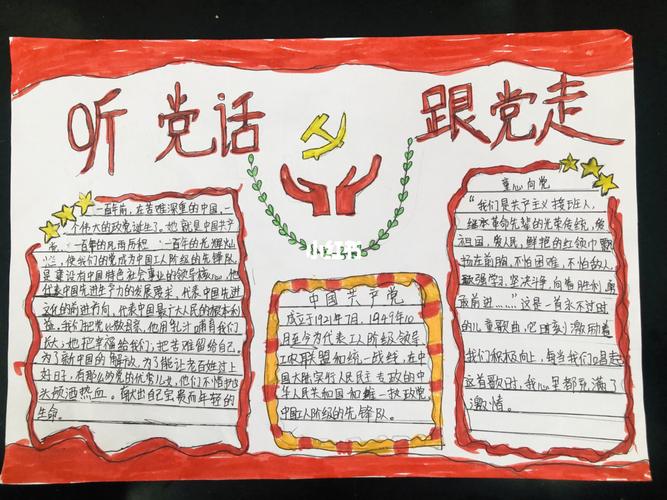 听党话 跟党走
一百年前，在苦难深重的中国，一
个伟大的政党诞生了。她就是中国共产
党。一百年的风雨历程，一百年的光辉灿
烂，使我们的党成为中国工人阶级的先锋队，
是建设有中国特色社会事业的领导核心，他
代表中国先进生产力的发展要求，代表中国先进
文化的前进方向，代表中国最广大人民的根本利
益。我们把党比做母亲，他用乳汁哺育我们
长大；她把幸福给我们；把苦难留给自己。
为了新中国的解放，为了能让老百姓过上
好日子，有那么的党的优秀儿女，他们不惜抛
头颅洒热血。献出自己宝贵而年轻的
生命。
小红书
中国共产党
成立于1921年7月，1949年10
月至今为代表工人阶级领导
工农联盟和统一战线，在中
国大陆实行人民民主专政的中
华人民共和国和唯一执政党，
中国工人阶级的先锋队。
童心向党
“我们是共产主义接班人，
继承革命先辈的光荣传统，爱
祖国，爱人民，鲜艳的红领巾飘
扬在前胸，不怕困难，不怕敌人，
顽强学习，坚决斗争，向着胜利，勇
敢前进……”这是一首永不过时
的儿童歌曲，它时刻激励着
我们积极向上，每当我们唱起
这首歌时，我心里都充满了
激情。